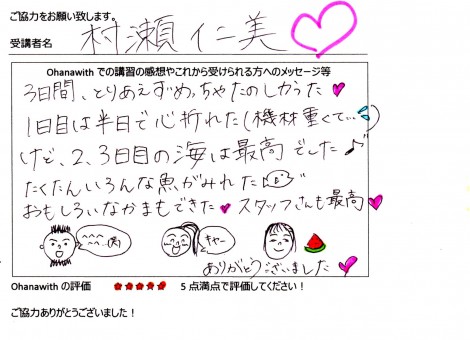 ご協力をお願い致します。
受講者名 村瀬仁美
Ohanawith での講習の感想やこれから受けられる方へのメッセージ等
3日間、とりあえずめっちゃたのしかった
1日目は半日で心折れた(機材重くて…
けど、2、3日目の海は最高でした♪
たくたんいろんな魚がみれた
おもしろいなかまもできた スタッフさんも最高
キャー
ありがとうございました
Ohanawith の評価 ★★★★★ 5 点満点で評価してください!
ご協力ありがとうございました!